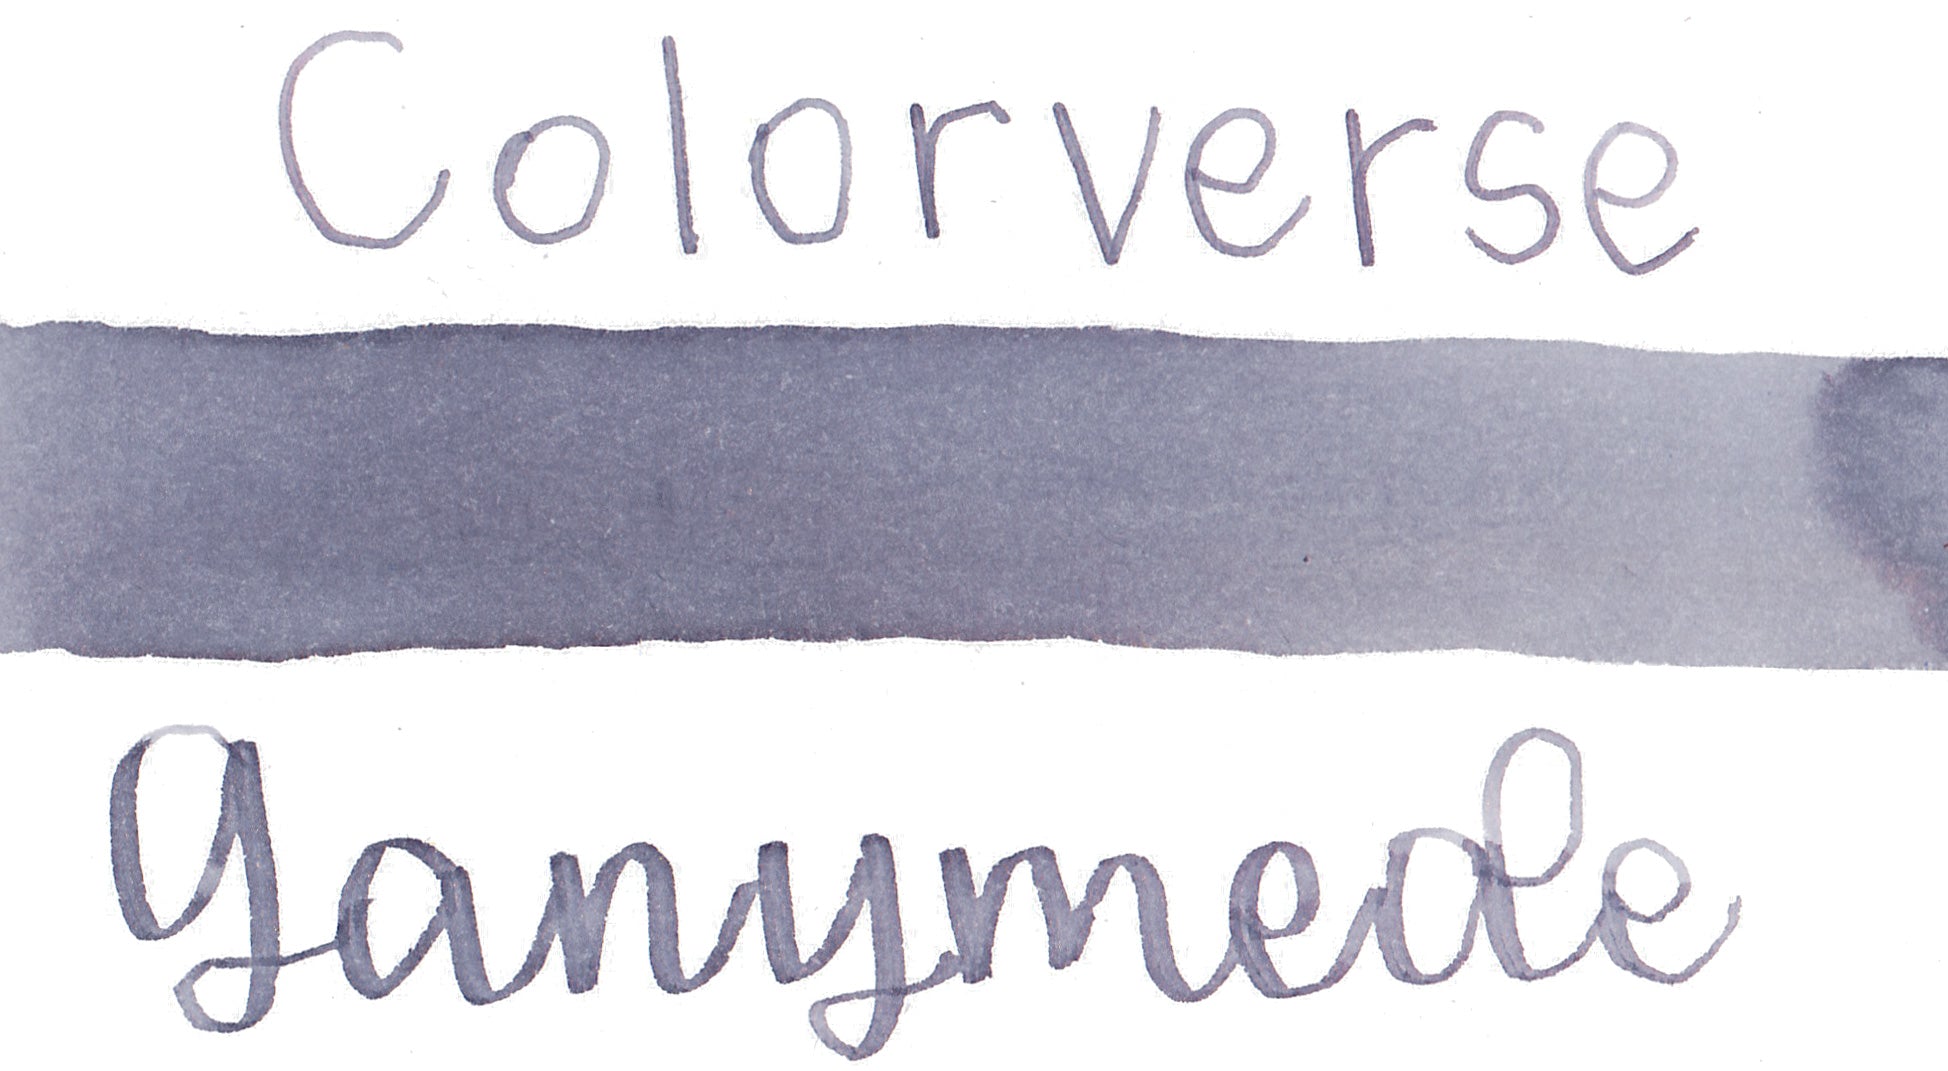 Colorverse
Ganymede